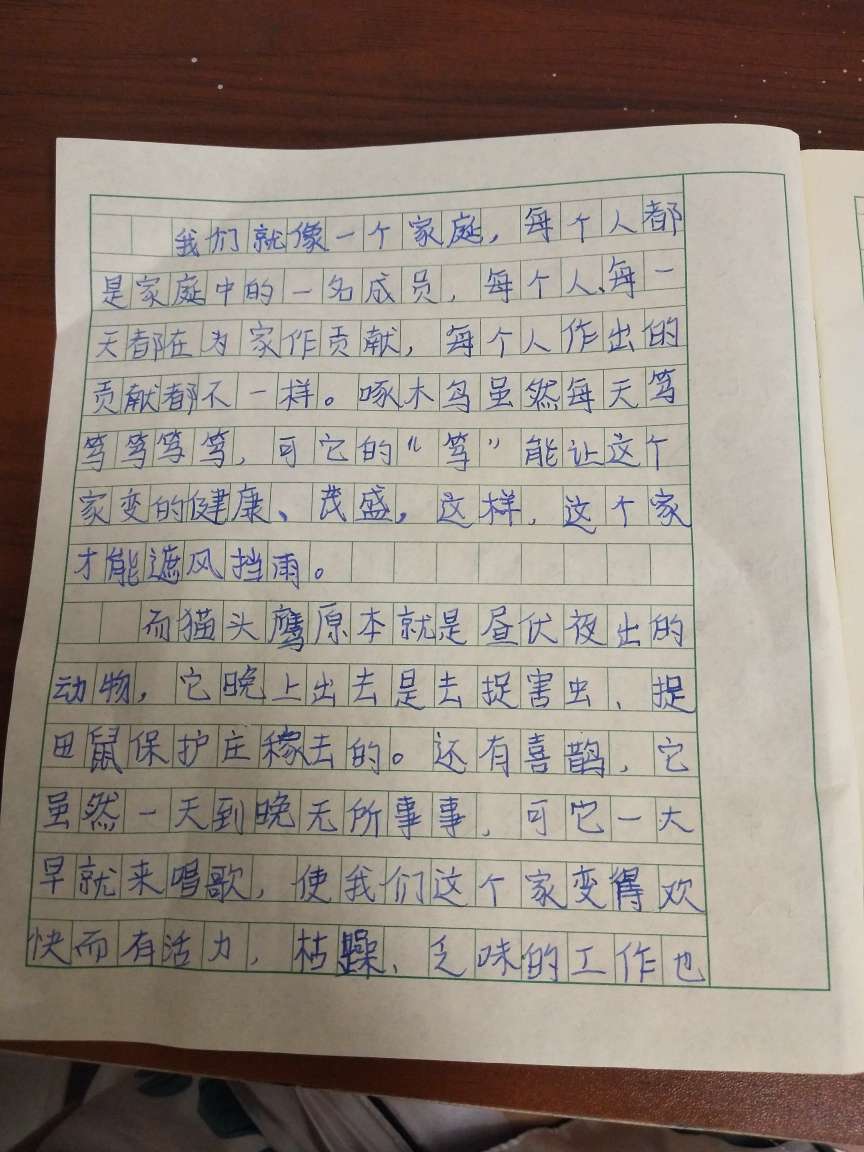 我们就像一个家庭，每个人都
是家庭中的一名成员，每个人、每一
天都在为家作贡献，每个人作出的
贡献都不一样。啄木鸟虽然每天笃
笃笃笃笃，可它的“笃”能让这个
家变的健康、茂盛，这样，这个家
才能遮风挡雨。
而猫头鹰原本就是昼伏夜出的
动物，它晚上出去是去捉害虫、捉
田鼠保护庄稼去的。还有喜鹊，它
虽然一天到晚无所事事，可它一大
早就来唱歌，使我们这个家变得欢
快而有活力，枯躁、乏味的工作也